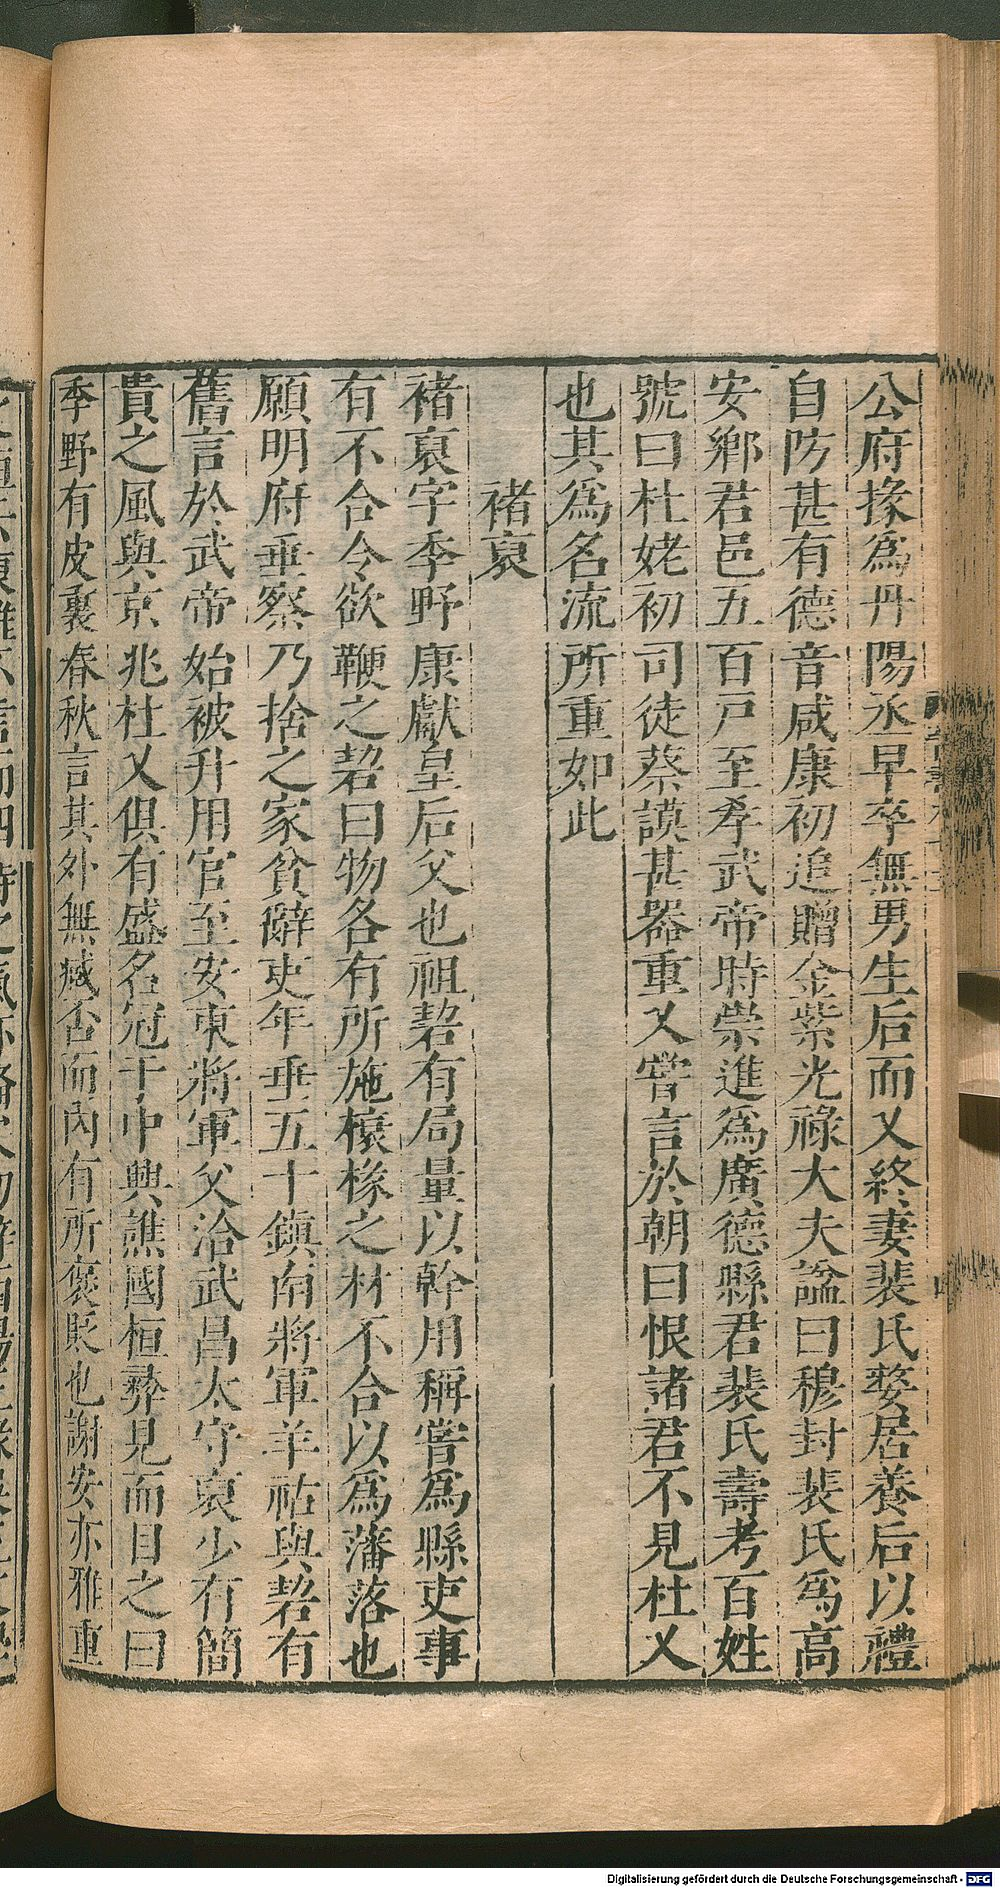 公府掾爲丹陽丞早卒無男生后而乂終妻裴氏嫠居養后以禮
自防甚有德音咸康初追贈金紫光祿大夫諡曰穆封裴氏爲高
安鄉君邑五百戸至孝武帝時崇進爲廣德縣君裴氏壽考百姓
號曰杜姥初司徒蔡謨甚器重乂嘗言於朝曰恨諸君不見杜乂
也其爲名流所重如此
褚裒
褚裒字季野康獻皇后父也祖䂮有局量以幹用稱嘗爲縣吏事
有不合令欲鞭之䂮曰物各有所施榱椽之材不合以爲藩落也
願明府垂察乃捨之家貧辭吏年垂五十鎮南將軍羊祜與䂮有
舊言於武帝始被升用官至安東將軍父洽武昌太守裒少有簡
貴之風與京兆杜乂俱有盛名冠于中興譙國桓彞見而目之曰
季野有皮裏春秋言其外無臧否而内有所褒貶也謝安亦雅重
Digitalisierung gefördert durch die Deutsche Forschungsgemeinschaft - DFG